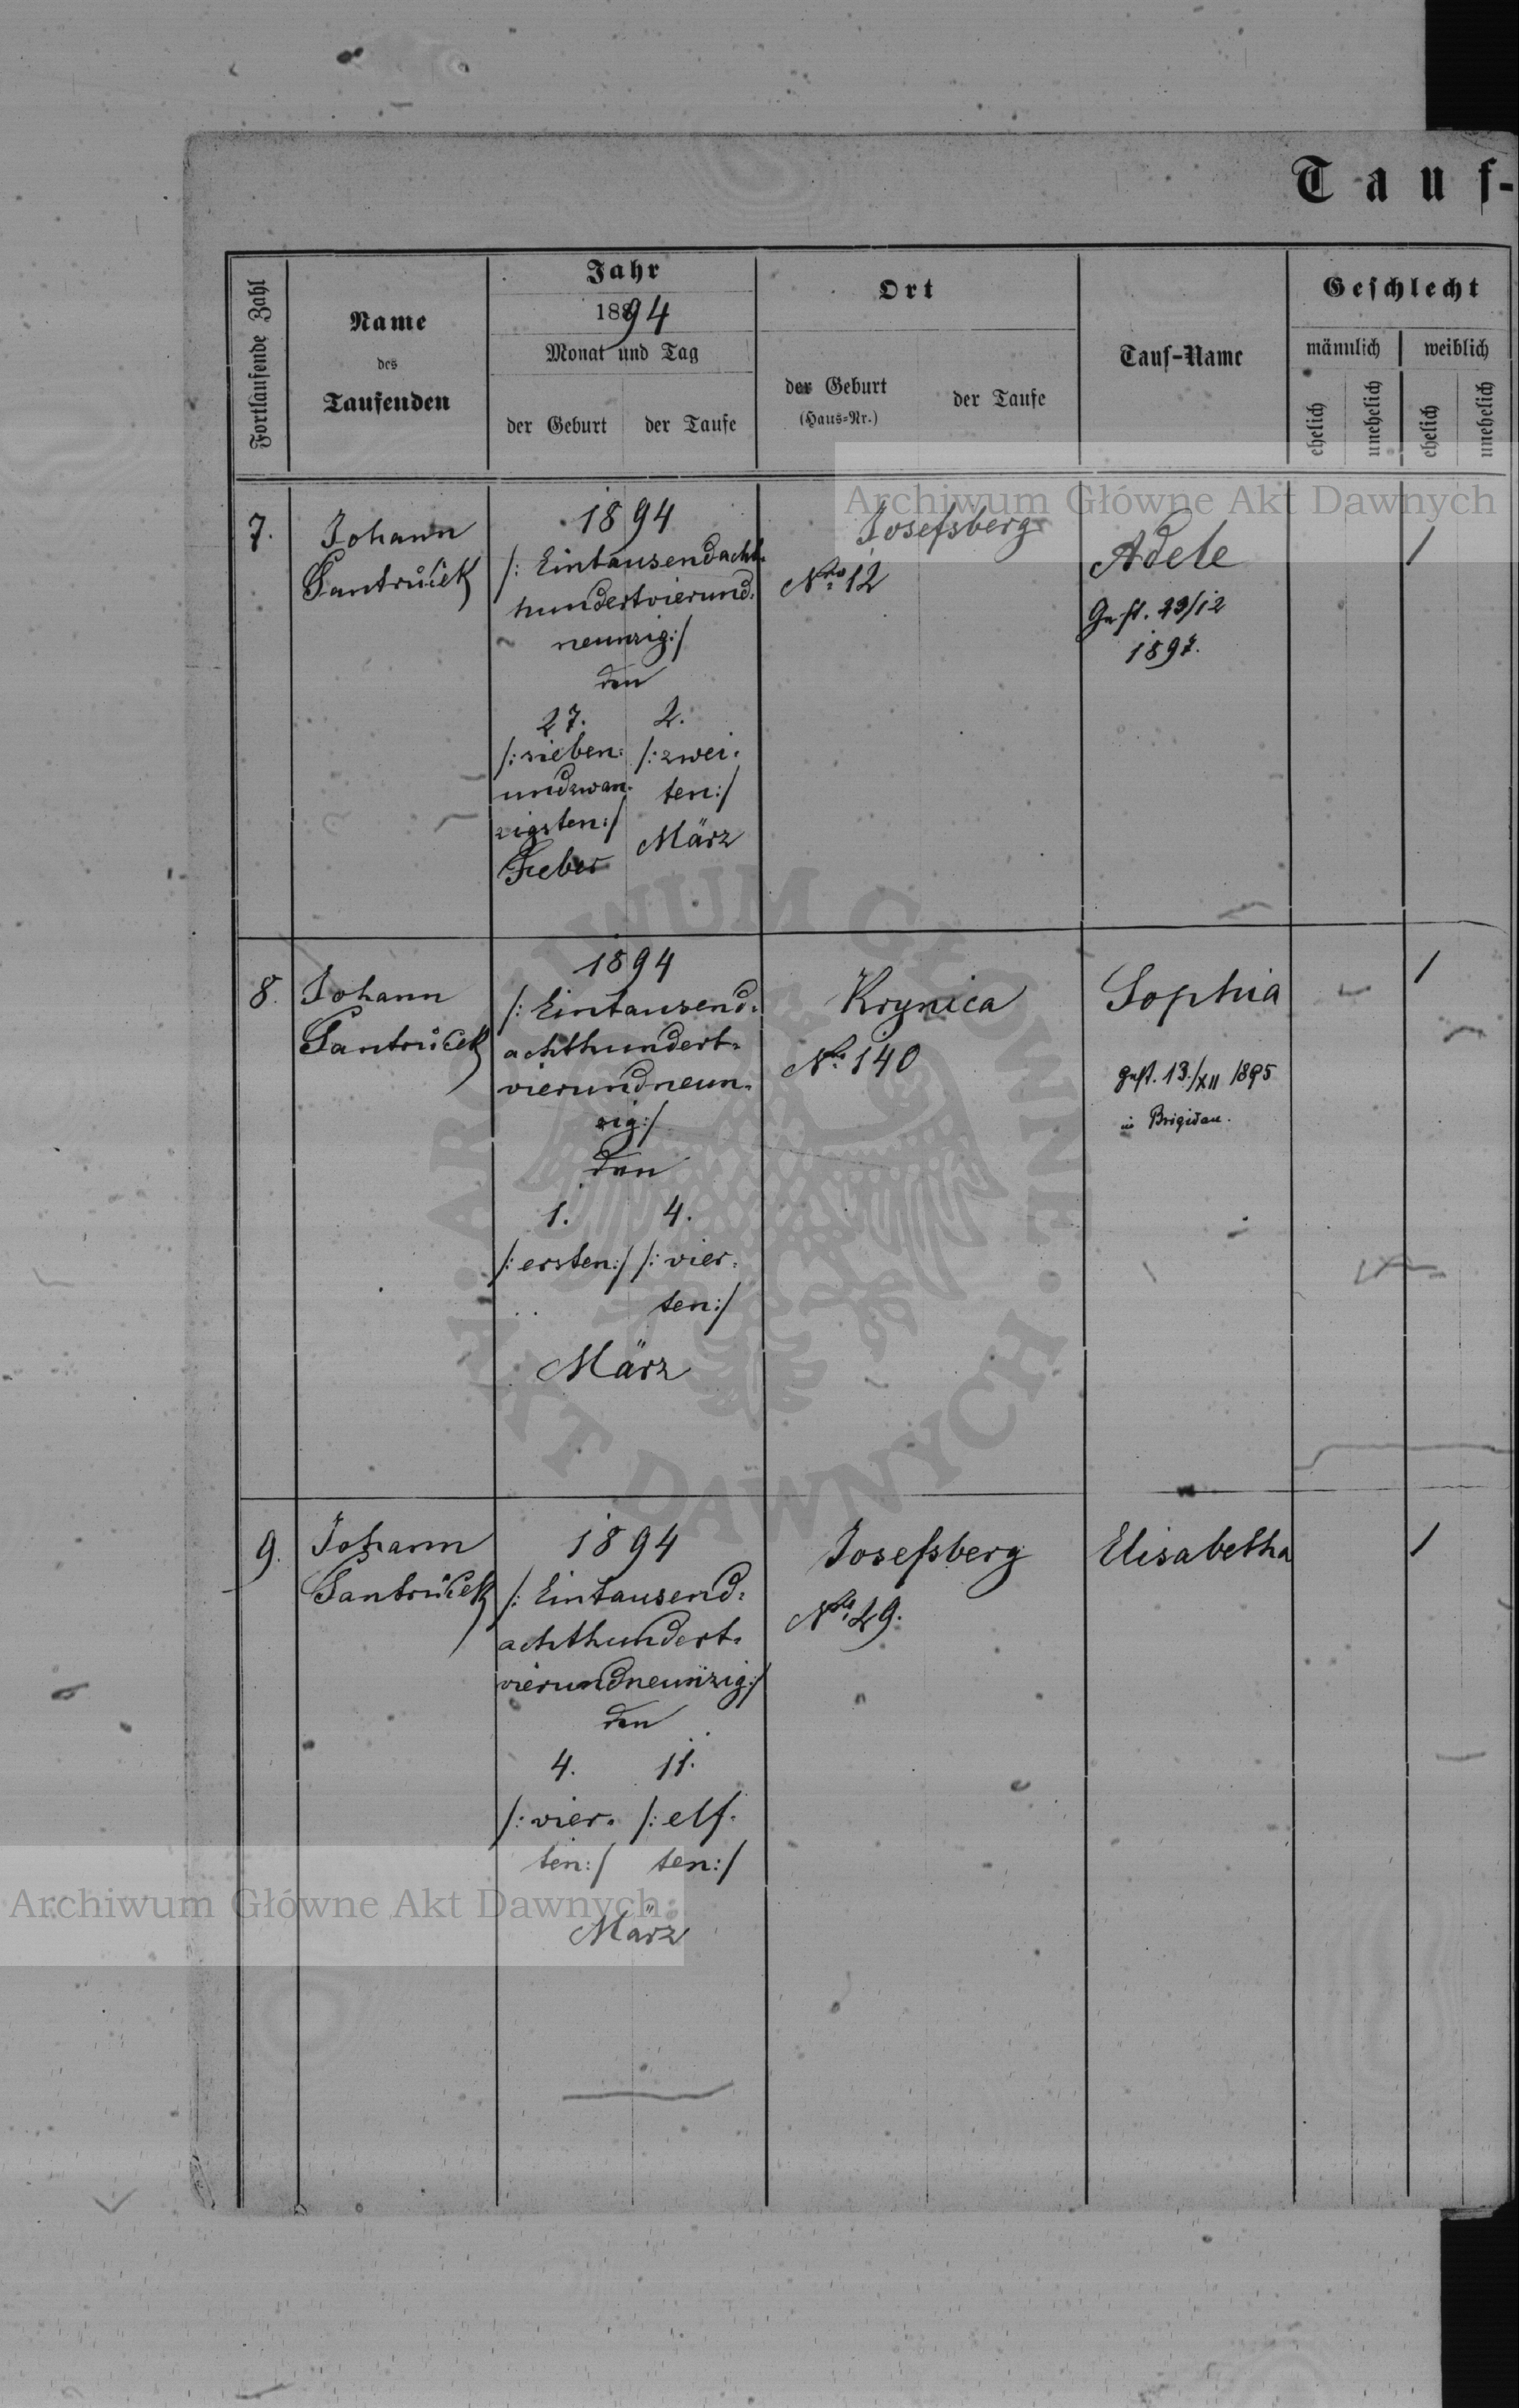 Tauf-
Fortlaufende Zahl
Name
des
Taufenden
Jahr
1894
Monat und Tag
der Geburt
der Taufe
Ort
der Geburt
(Haus-Nr.)
der Taufe
Tauf-Name
Geschlecht
männlich
weiblich
ehelich
unehelich
ehelich
unehelich
Archiwum Główne Akt Dawnych
7.
Johann
Santrůček
1894
/: Eintausendacht-
hundertvierund-
neunzig:/
den
27. 2.
/: sieben- /: zwei-
undzwan- ten:/
zigsten:/
Feber März
Josefsberg
Nro 12
Adele
Gest. 29/12
1897.
1
8.
Johann
Santrůček
1894
/: Eintausend-
achthundert-
vierundneun-
zig:/
den
1. 4.
/: ersten:/ /: vier-
ten:/
März
Krynica
No. 140
Sophia
gest. 13./XII 1895
in Brigidau.
1
9.
Johann
Santrůček
1894
/: Eintausend-
achthundert-
vierundneunzig:/
den
4. 11.
/: vier- /: elf-
ten:/ ten:/
März
Josefsberg
Nro 29.
Elisabetha
1
Archiwum Główne Akt Dawnych
ARCHIWUM GŁÓWNE • AKT DAWNYCH •